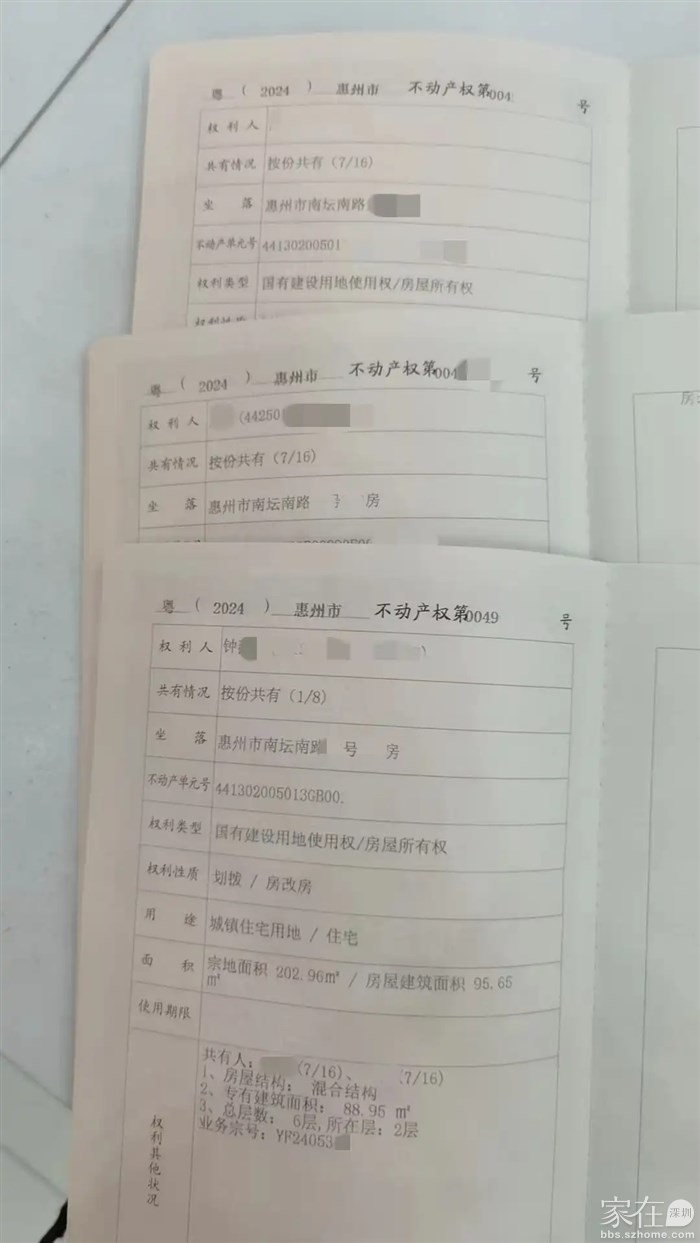 粤 ( 2024 ) 惠州市 不动产权第004 号
权利人
共有情况 按份共有 (7/16)
坐 落 惠州市南坛南路
不动产单元号 44130200501
权利类型 国有建设用地使用权/房屋所有权
权利性质
粤 ( 2024 ) 惠州市 不动产权第004 号
权利人 (44250
共有情况 按份共有 (7/16)
坐 落 惠州市南坛南路 号 房
房
粤 ( 2024 ) 惠州市 不动产权第0049 号
权利人 钟
共有情况 按份共有 (1/8)
坐 落 惠州市南坛南路 号 房
不动产单元号 441302005013GB00.
权利类型 国有建设用地使用权/房屋所有权
权利性质 划拨 / 房改房
用 途 城镇住宅用地 / 住宅
面 积 宗地面积 202.96㎡ / 房屋建筑面积 95.65
㎡
使用期限
权利其他状况
共有人: (7/16)、 (7/16)
1、房屋结构: 混合结构
2、专有建筑面积: 88.95 ㎡
3、总层数: 6层,所在层:2层
业务宗号:YF24053
家在深圳
bbs.szhome.com